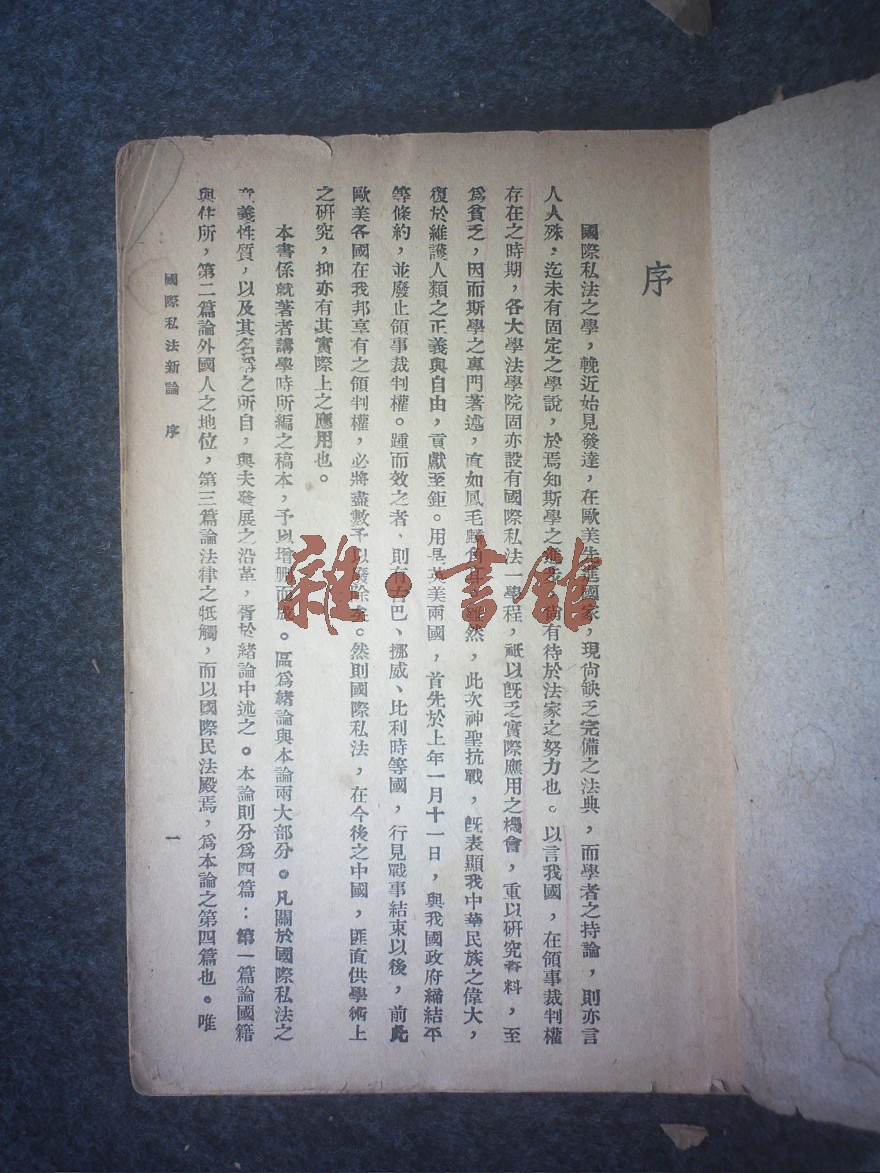 序
國際私法之學，輓近始見發達，在歐美先進國家，現尙缺乏完備之法典，而學者之持論，則亦言
人人殊，迄未有固定之學說，於焉知斯學之　　，尙有待於法家之努力也。以言我國，在領事裁判權
存在之時期，各大學法學院固亦設有國際私法一學程，祇以旣乏實際應用之機會，重以研究資料，至
爲貧乏，因而斯學之專門著述，直如鳳毛麟角　　然，此次神聖抗戰，旣表顯我中華民族之偉大，
復於維護人類之正義與自由，貢獻至鉅。用是英美兩國，首先於上年一月十一日，與我國政府締結平
等條約，並廢止領事裁判權。踵而效之者、則有古巴、挪威、比利時等國，行見戰事結束以後，前此
歐美各國在我邦享有之領判權，必將盡數予以廢除矣。然則國際私法，在今後之中國，匪直供學術上
之研究，抑亦有其實際上之應用也。
本書係就著者講學時所編之稿本，予以增删而成。區爲緒論與本論兩大部分。凡關於國際私法之
意義性質，以及其名稱之所自，與夫發展之沿革，胥於緒論中述之。本論則分爲四篇：第一篇論國籍
與住所，第二篇論外國人之地位，第三篇論法律之牴觸，而以國際民法殿焉，爲本論之第四篇也。唯
國際私法新論　序
一
雜·書館